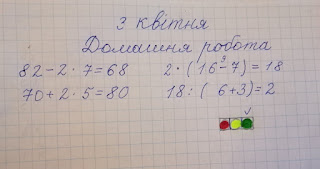 3 квітня
Домашня робота
82-2·7=68 2·(16-7)=18
9
70+2·5=80 18:(6+3)=2